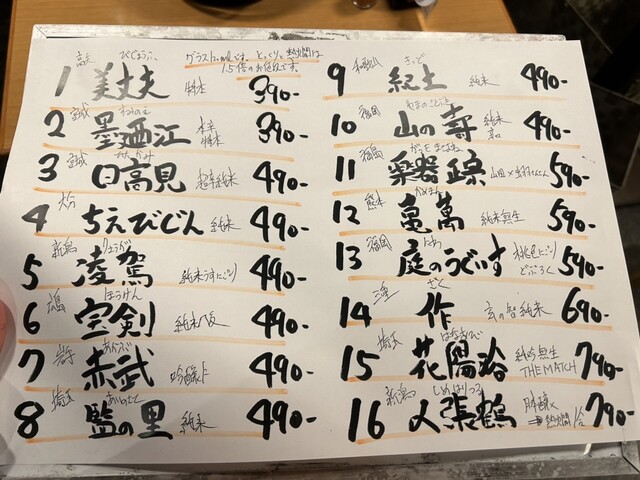 高知 びじょうふ
1 美丈夫 特本 390-
グラス1杯の値段です。とっくり、熱燗は
1.5倍のお値段です。
宮城
2 墨廼江 本辛 特本 390-
宮城 ひたかみ
3 日高見 超辛純米 490-
4 ちえびじん 純米 490-
新潟 りょうが
5 凌駕 純米うすにごり 490-
広島 ほうけん
6 宝剣 純米 490-
岩手 あかぶ
7 赤武 吟醸 490-
埼玉 あいのさと
8 藍の里 純米 490-
和歌山 きっど
9 紀土 純米 490-
福岡 やまのことぶき
10 山の寿 純米 490-
福島 がっきまさむね
11 楽器正宗 590-
熊本 かめまん
12 亀萬 純米無生 590-
福岡 にわ
13 庭のうぐいす 桃色にごり どぶろく 590-
三重 ざく
14 作 玄の智 純米 690-
埼玉 はなようび
15 花陽浴 純吟無生 THE MATCH 790-
新潟 しめはりつる
16 〆張鶴 790-